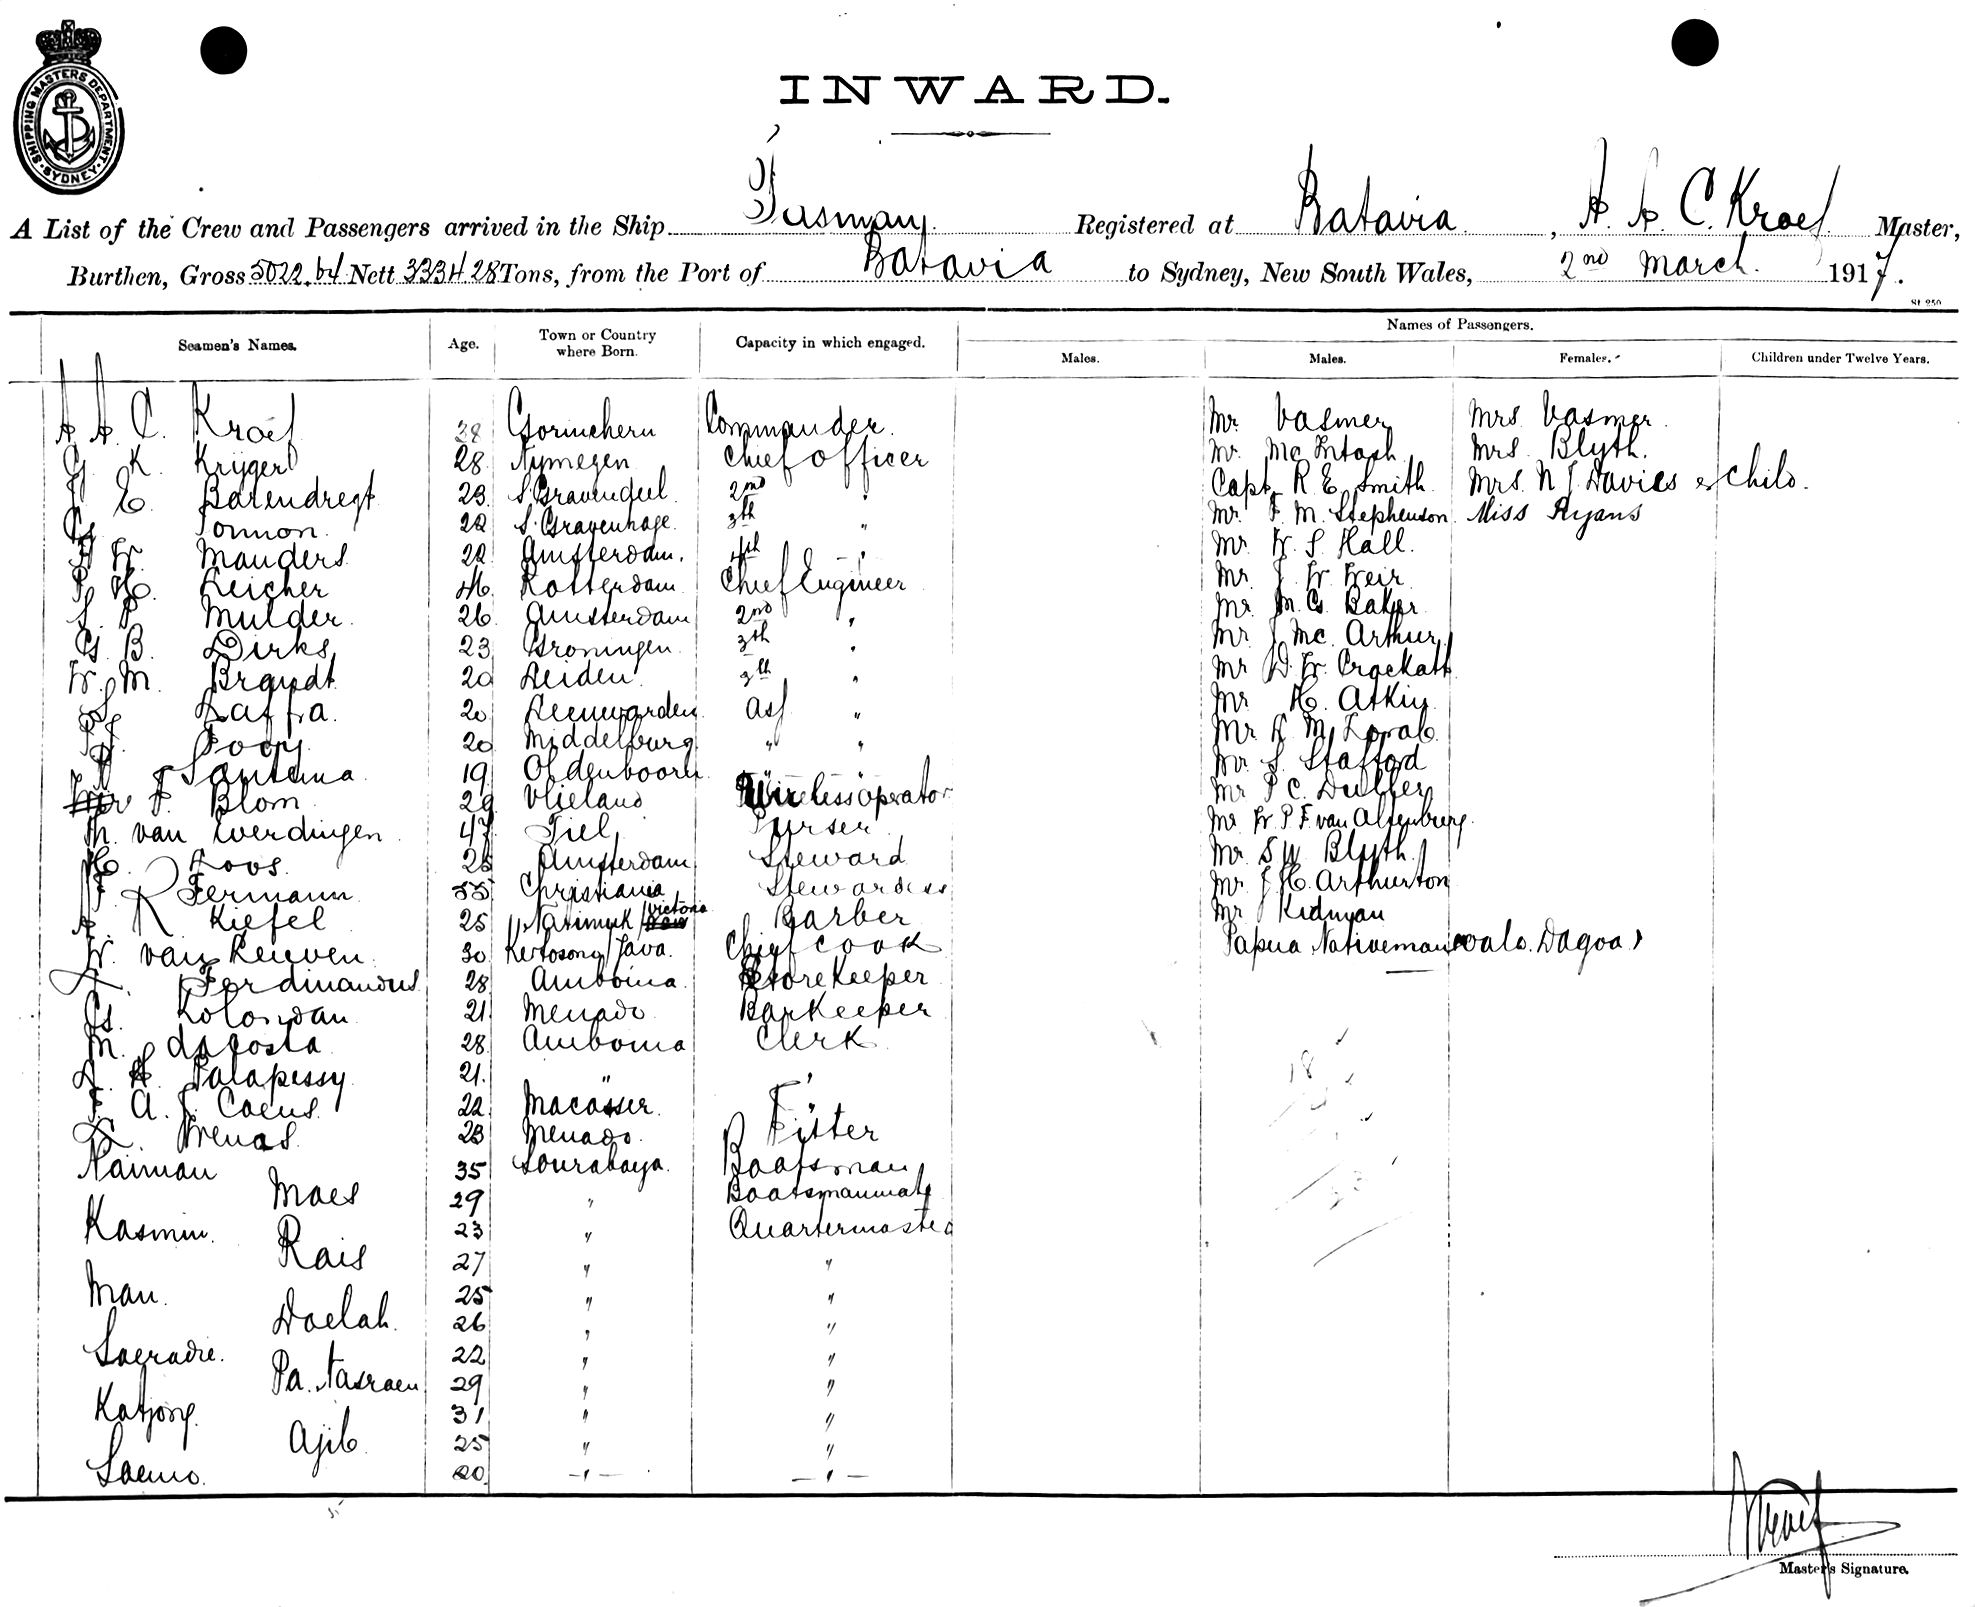 SHIPPING MASTERS DEPARTMENT. SYDNEY.
INWARD.
A List of the Crew and Passengers arrived in the Ship Tasman Registered at Batavia, A. A. C. Kroef Master,
Burthen, Gross 5022.64 Nett 3334 28 Tons, from the Port of Batavia to Sydney, New South Wales, 2nd March. 1917.
St 250
Seamen's Names. Age. Town or Country where Born. Capacity in which engaged. Names of Passengers.
Males. Males. Females. Children under Twelve Years.
A A. C. Kroef 38 Gorinchem Commander. Mr Vasmer Mrs Vasmer
G. K. Krijger 28 Nymegen Chief officer Mr. Mc Intosh Mrs. Blyth.
C. Barendregt 23 S. Gravendeel 2nd " Capt R. E. Smith Mrs. N J. Davies & child.
Tonnon. 22 S. Gravenhage. 3th " Mr. F. M. Stephenson Miss Ryans
W. Manders 22 Amsterdam. 4th - " - Mr W. S. Hall.
P. H. Reicher 46 Rotterdam Chief Engineer Mr J. W. Weir
S. P. Mulder. 26 Amsterdam 2nd " Mr M. G. Baker
G. B. Dirks 23 Groningen 3th " Mr J Mc. Arthur
W. M. Brandt 20 Leiden. 3th " Mr D. W. Crockatt
S. Raffa. 20 Leeuwarden. Ass " Mr H. Atkin
20 Middelburg " " Mr R. M.
Santema 19 Oldenboorn " " Mr S. Stafford
F. Blom 29 Vlieland Wireless operator Mr P C. Duffer
Th. van Everdingen 47 Tiel Purser Mr W. P. F. van Altenburg.
H. Roos. 25 Amsterdam Steward Mr. S W Blyth.
F. Fermann 55 Christiania Stewardess Mr. J. H. Arthurton
A. R Kiefel 25 Natimuk / Victoria Barber Mr J Kidman
W. van Leuven 30 Kertosong / Java. Chief cook Papua Nativeman Dagoa
A. Ferdinandus 28 Amboina Storekeeper
G. Kolondan 21 Menado Barkeeper
M. dacosta 28 Amboina Clerk
A. H. Palapessy 21. " "
F. A. J. Caeus 22 Macasser. "
K. Wenas. 23 Menado. Fitter
Naiman 35 Sourabaya. Boatsman
Moes 29 " Boatsmanmate
Kasmin. 23 " Quartermaster
Rais 27 " "
Man. 25 " "
Doelah. 26 " "
Soeradie. 22 " "
Pa. Tasraen 29 " "
Katjong. 31 " "
Ajib 25 " "
Soemo. 20 - " - - " -
18
Kroef
Master's Signature.